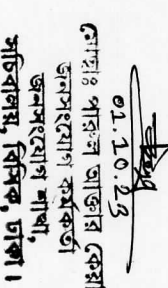 01.10.23
মোছাঃ আক্তার কেয়া
জনসংযোগ কর্মকর্তা
জনসংযোগ শাখা,
সচিবালয়, বিসিক, ঢাকা।